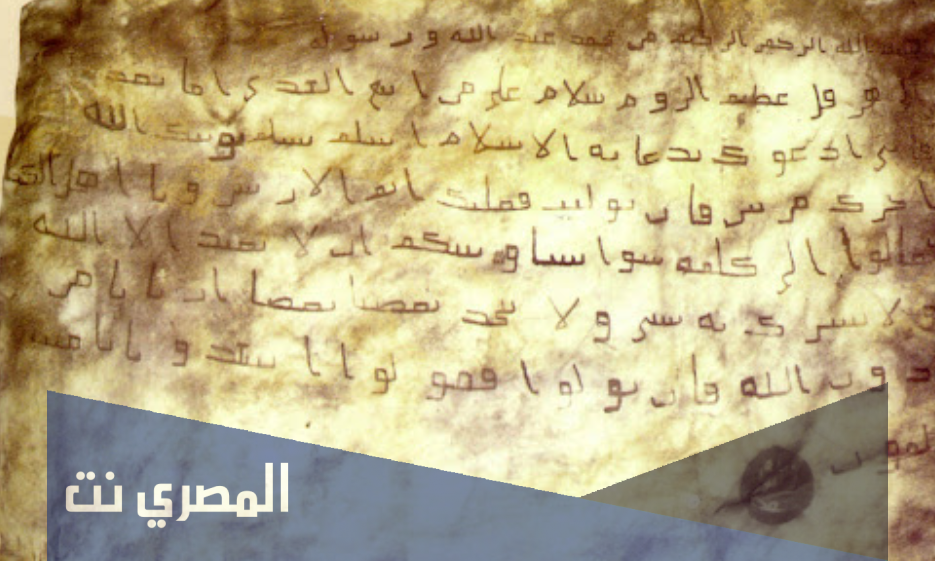 بسم الله الرحمن الرحيم من محمد عبد الله و رسوله
الى هرقل عظيم الروم سلام على من اتبع الهدى اما بعد
فانى ادعوك بدعاية الاسلام اسلم تسلم يوتك الله
اجرك مرتين فان توليت فعليك اثم و يا اهل
تعالوا الى كلمة سوا بيننا وبينكم ان لا نعبد الا الله
و لا نشرك به و لا يتخذ بعضنا بعضا اربابا من
دون الله فان تولوا فقولوا
المصري نت